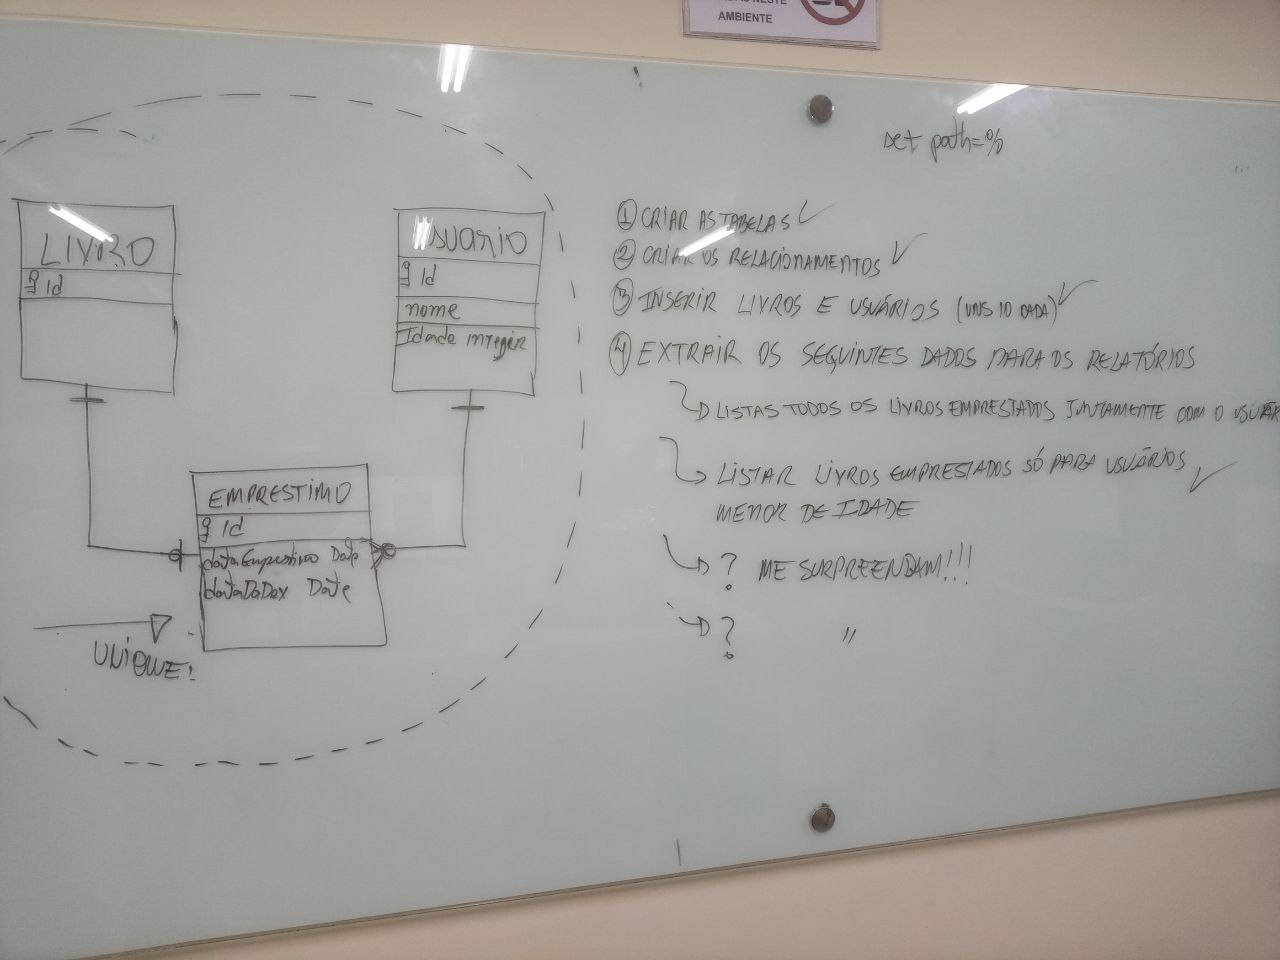 AMBIENTE
set path=%
LIVRO
id
USUARIO
id
nome
Idade integer
EMPRESTIMO
id
dataEmprestimo Date
dataDaDev Date
UNIQUE!
① CRIAR AS TABELAS
② CRIAR OS RELACIONAMENTOS
③ INSERIR LIVROS E USUÁRIOS (UNS 10 CADA)
④ EXTRAIR OS SEGUINTES DADOS PARA OS RELATÓRIOS
LISTAS TODOS OS LIVROS EMPRESTADOS JUNTAMENTE COM O USUÁR
LISTAR LIVROS EMPRESTADOS SÓ PARA USUÁRIOS
MENOR DE IDADE
? ME SURPREENDAM!!!
? "